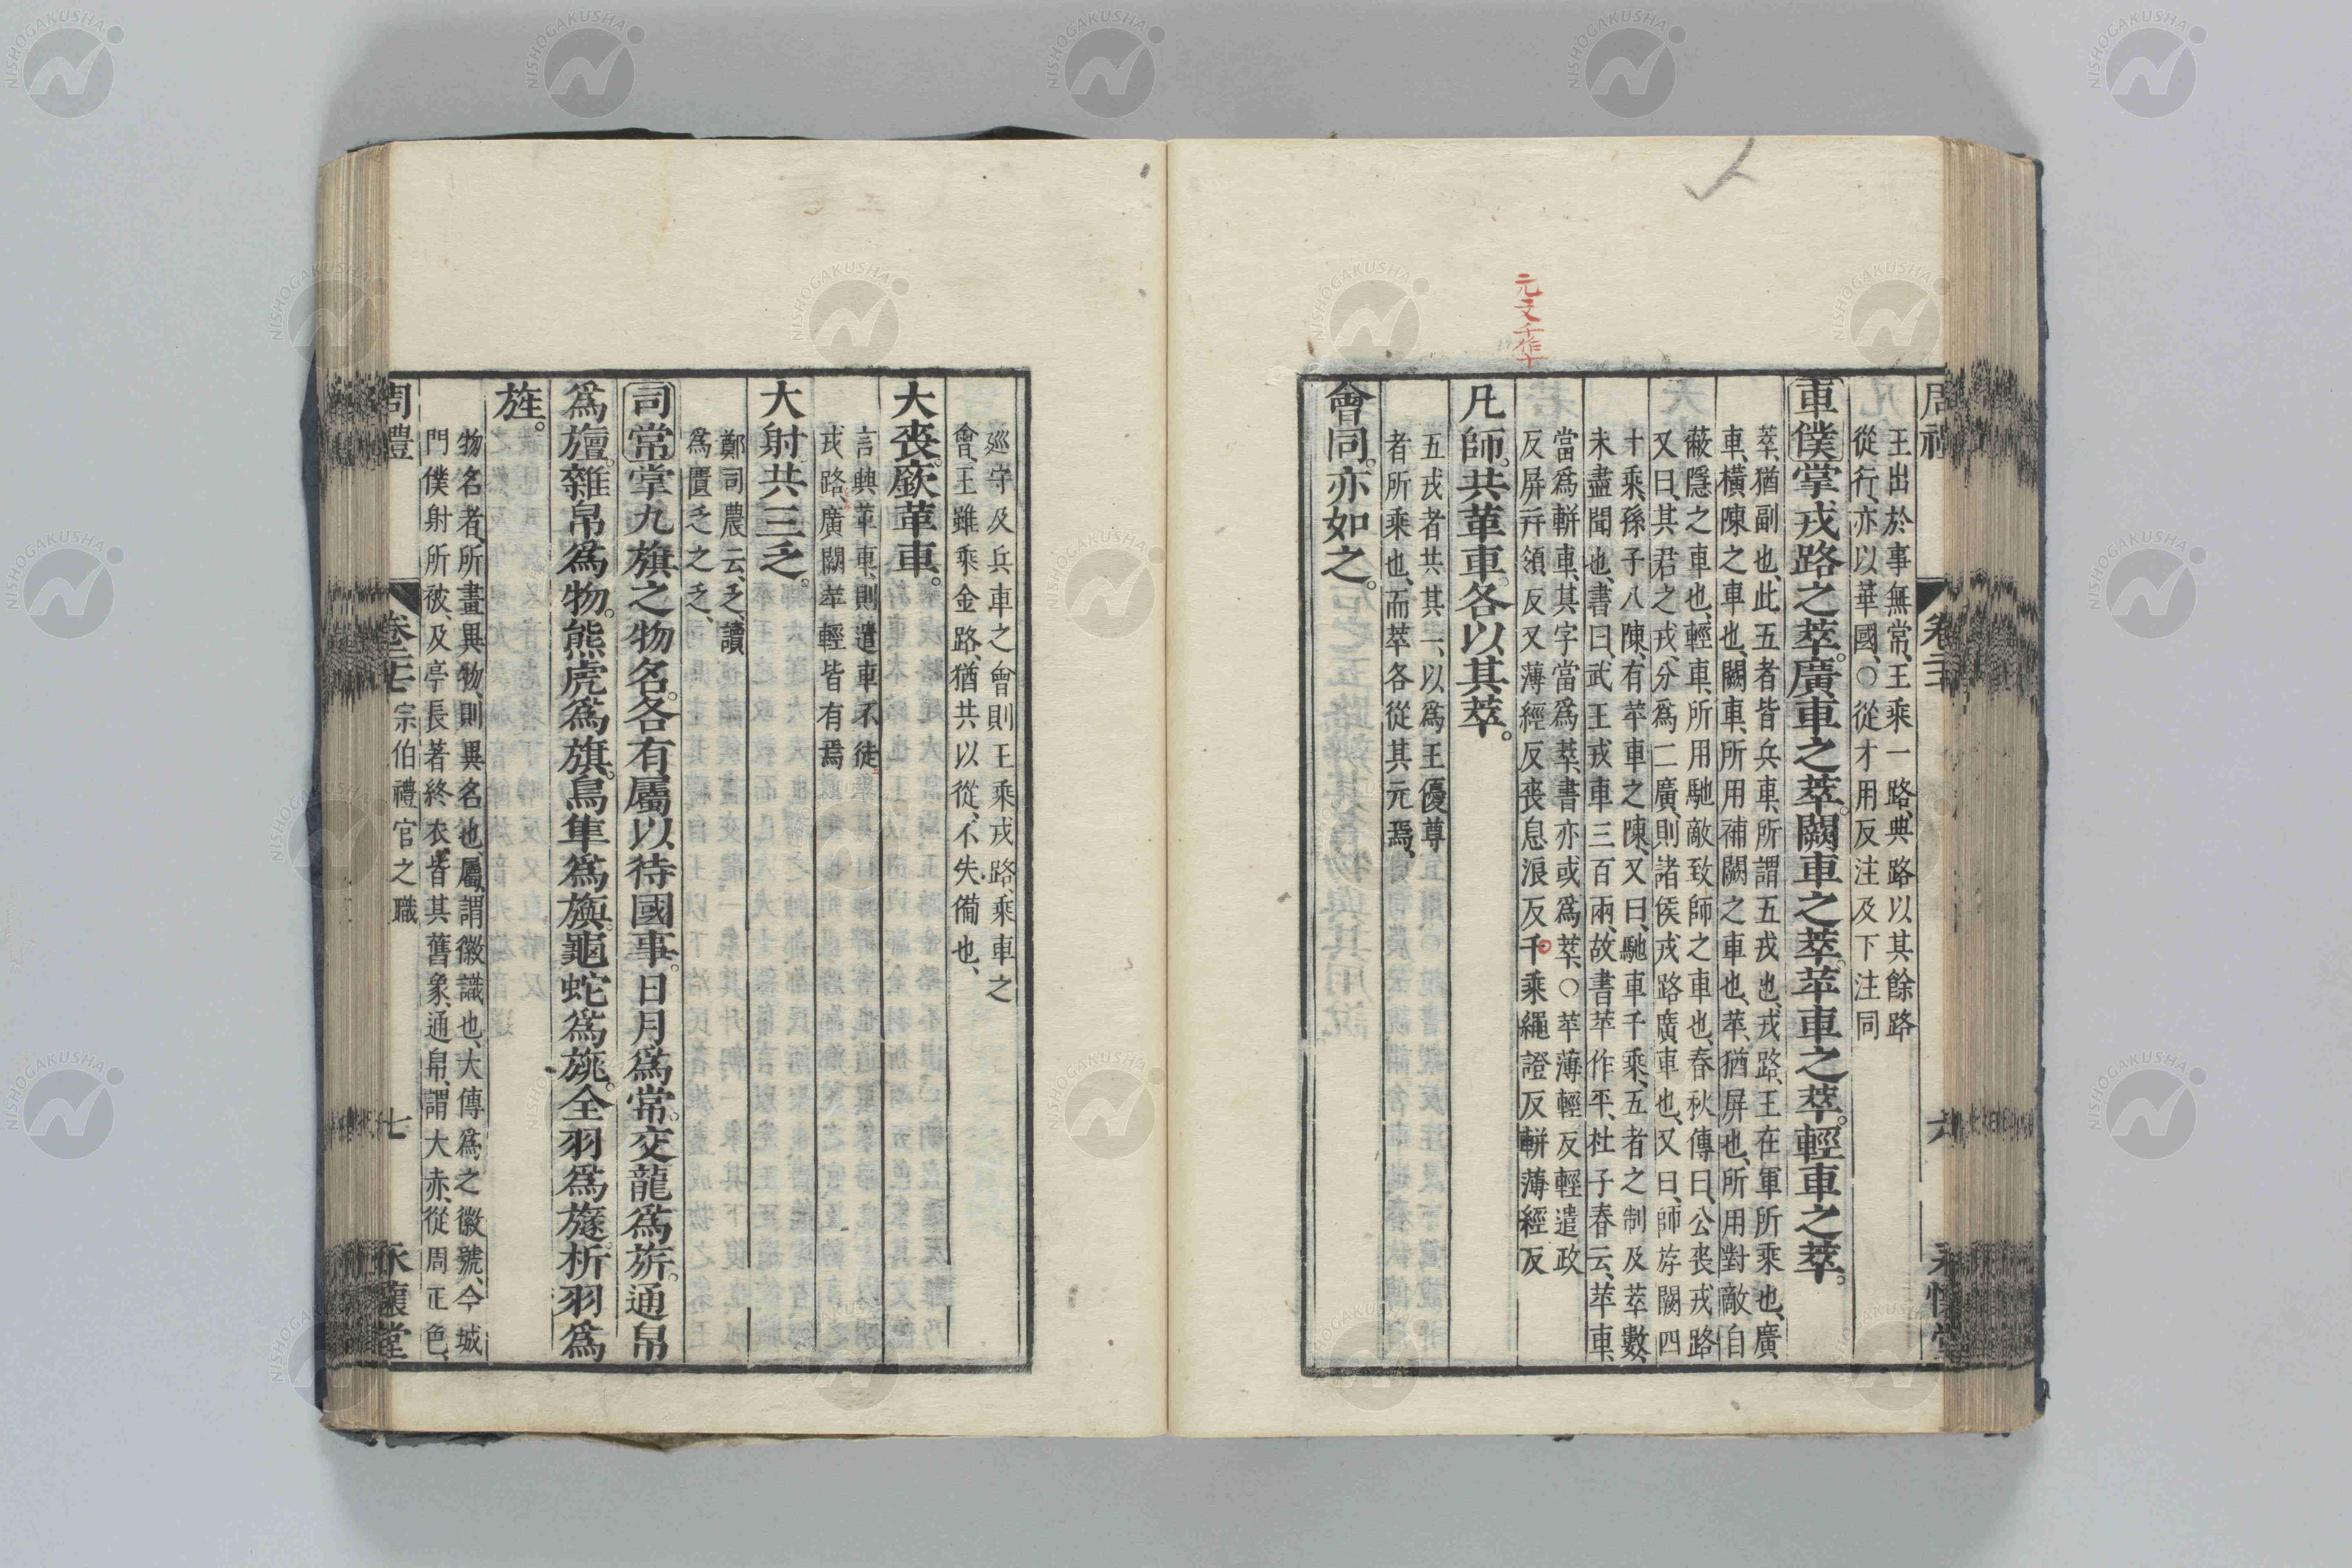 元文千作十
周禮 卷二十七 六 永懷堂
王出於事無常、王乘一路、典路以其餘路
從行、亦以華國、○從才用反注及下注同
車僕掌戎路之萃。廣車之萃。闕車之萃。苹車之萃。輕車之萃。
萃、猶副也、此五者皆兵車、所謂五戎也、戎路、王在軍所乘也、廣
車、橫陳之車也、闕車、所用補闕之車也、苹、猶屏也、所用對敵自
蔽隱之車也、輕車、所用馳敵致師之車也、春秋傳曰、公喪戎路
又曰、其君之戎、分爲二廣、則諸侯戎路廣車也、又曰、師斿闕四
十乘、孫子八陳、有苹車之陳、又曰、馳車千乘、五者之制及萃數、
未盡聞也、書曰、武王戎車三百兩、故書苹作平、杜子春云、苹車、
當爲軿車、其字當爲萃、書亦或爲萃、○苹薄輕反輕遣政
反屏幷領反又薄經反喪息浪反千乘繩證反軿薄經反
凡師。共革車。各以其萃。
五戎者共其一、以爲王優尊
者所乘也、而萃各從其元焉、
會同。亦如之。
巡守及兵車之會則王乘戎路、乘車之
會、王雖乘金路、猶共以從、不失備也、
大喪。廞革車。
言興革車、則遣車不徒
戎路、廣闕苹輕皆有焉
大射共三乏。
鄭司農云、乏、讀
爲匱乏之乏、
司常掌九旗之物名。各有屬以待國事。日月爲常。交龍爲旂。通帛
爲旜。雜帛爲物。熊虎爲旗。鳥隼爲旟。龜蛇爲旐。全羽爲旞。析羽爲
旌。
物名者、所畫異物、則異名也、屬、謂徽識也、大傳爲之徽號、今城
門僕射所被、及亭長著終衣、皆其舊象、通帛、謂大赤、從周正色、
周禮 卷二十七 宗伯禮官之職 七 永懷堂